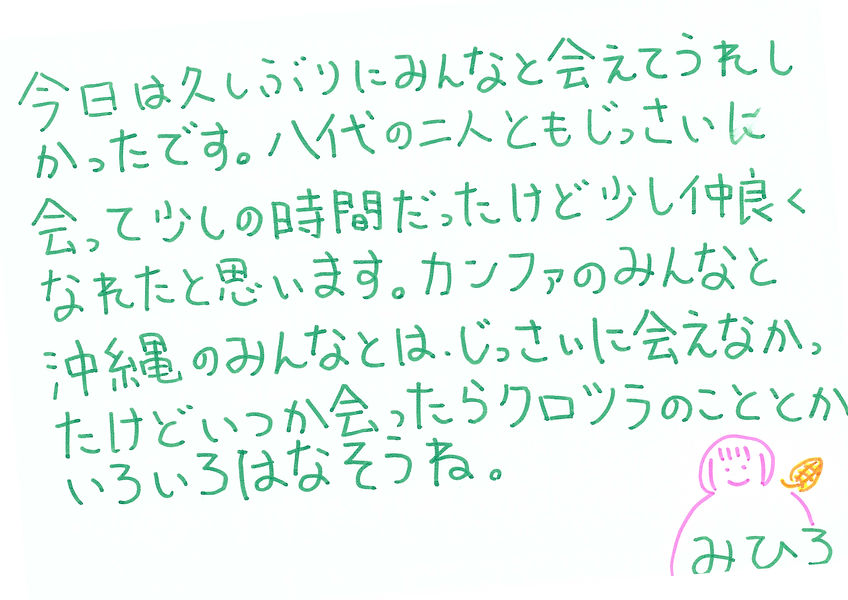 今日は久しぶりにみんなと会えてうれし
かったです。八代の二人ともじっさいに
会って少しの時間だったけど少し仲良く
なれたと思います。カンファのみんなと
沖縄のみんなとは、じっさいに会えなかっ
たけどいつか会ったらクロツラのこととか
いろいろはなそうね。
みひろ